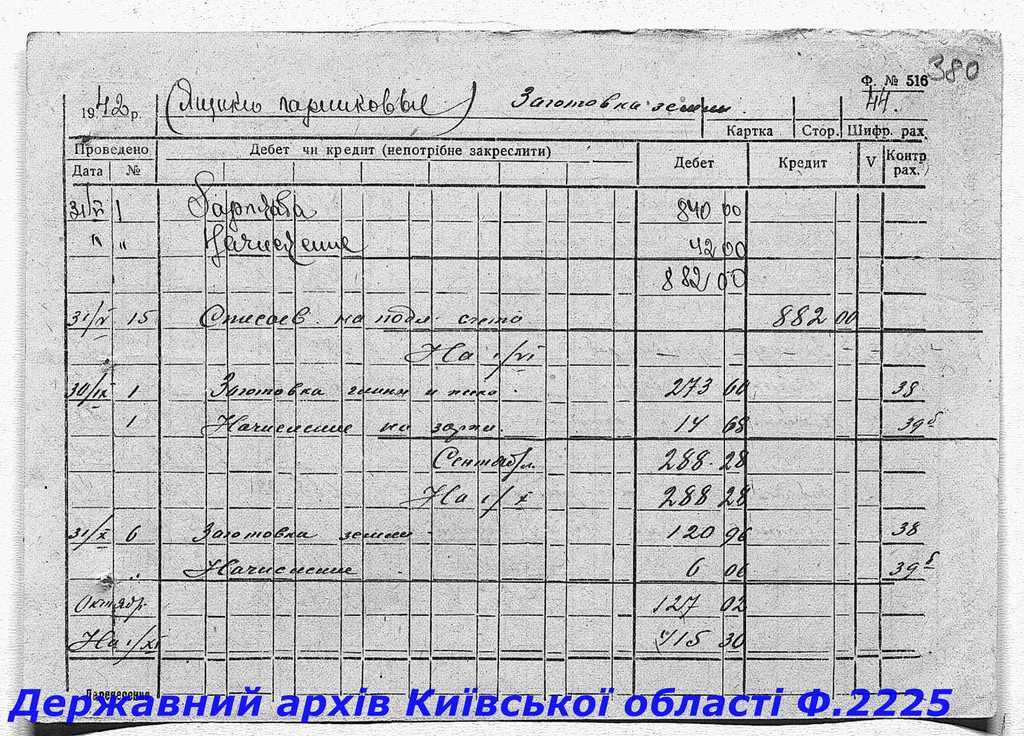 380
Ф. № 516
1942 р. (Ящики горшковые) Заготовка земли 44.
Картка Стор. Шифр. рах.
Проведено Дебет чи кредит (непотрібне закреслити) Дебет Кредит V Контр рах.
Дата №
31/V 1 Зарплата 840 00
" " Начисление 42 00
882 00
31/V 15 на подл. счета 882 00
На 1/VI — — — — — —
30/IX 1 Заготовка глины и 273 60 38
1 Начисление на зарпл. 14 68 39б
Сентябрь 288 28
На 1/X 288 28
31/X 6 Заготовка земли 120 96 38
" Начисление 6 06 39б
Октябрь 127 02
На 1/XI 415 30
Перенесення
Державний архів Київської області Ф.2225